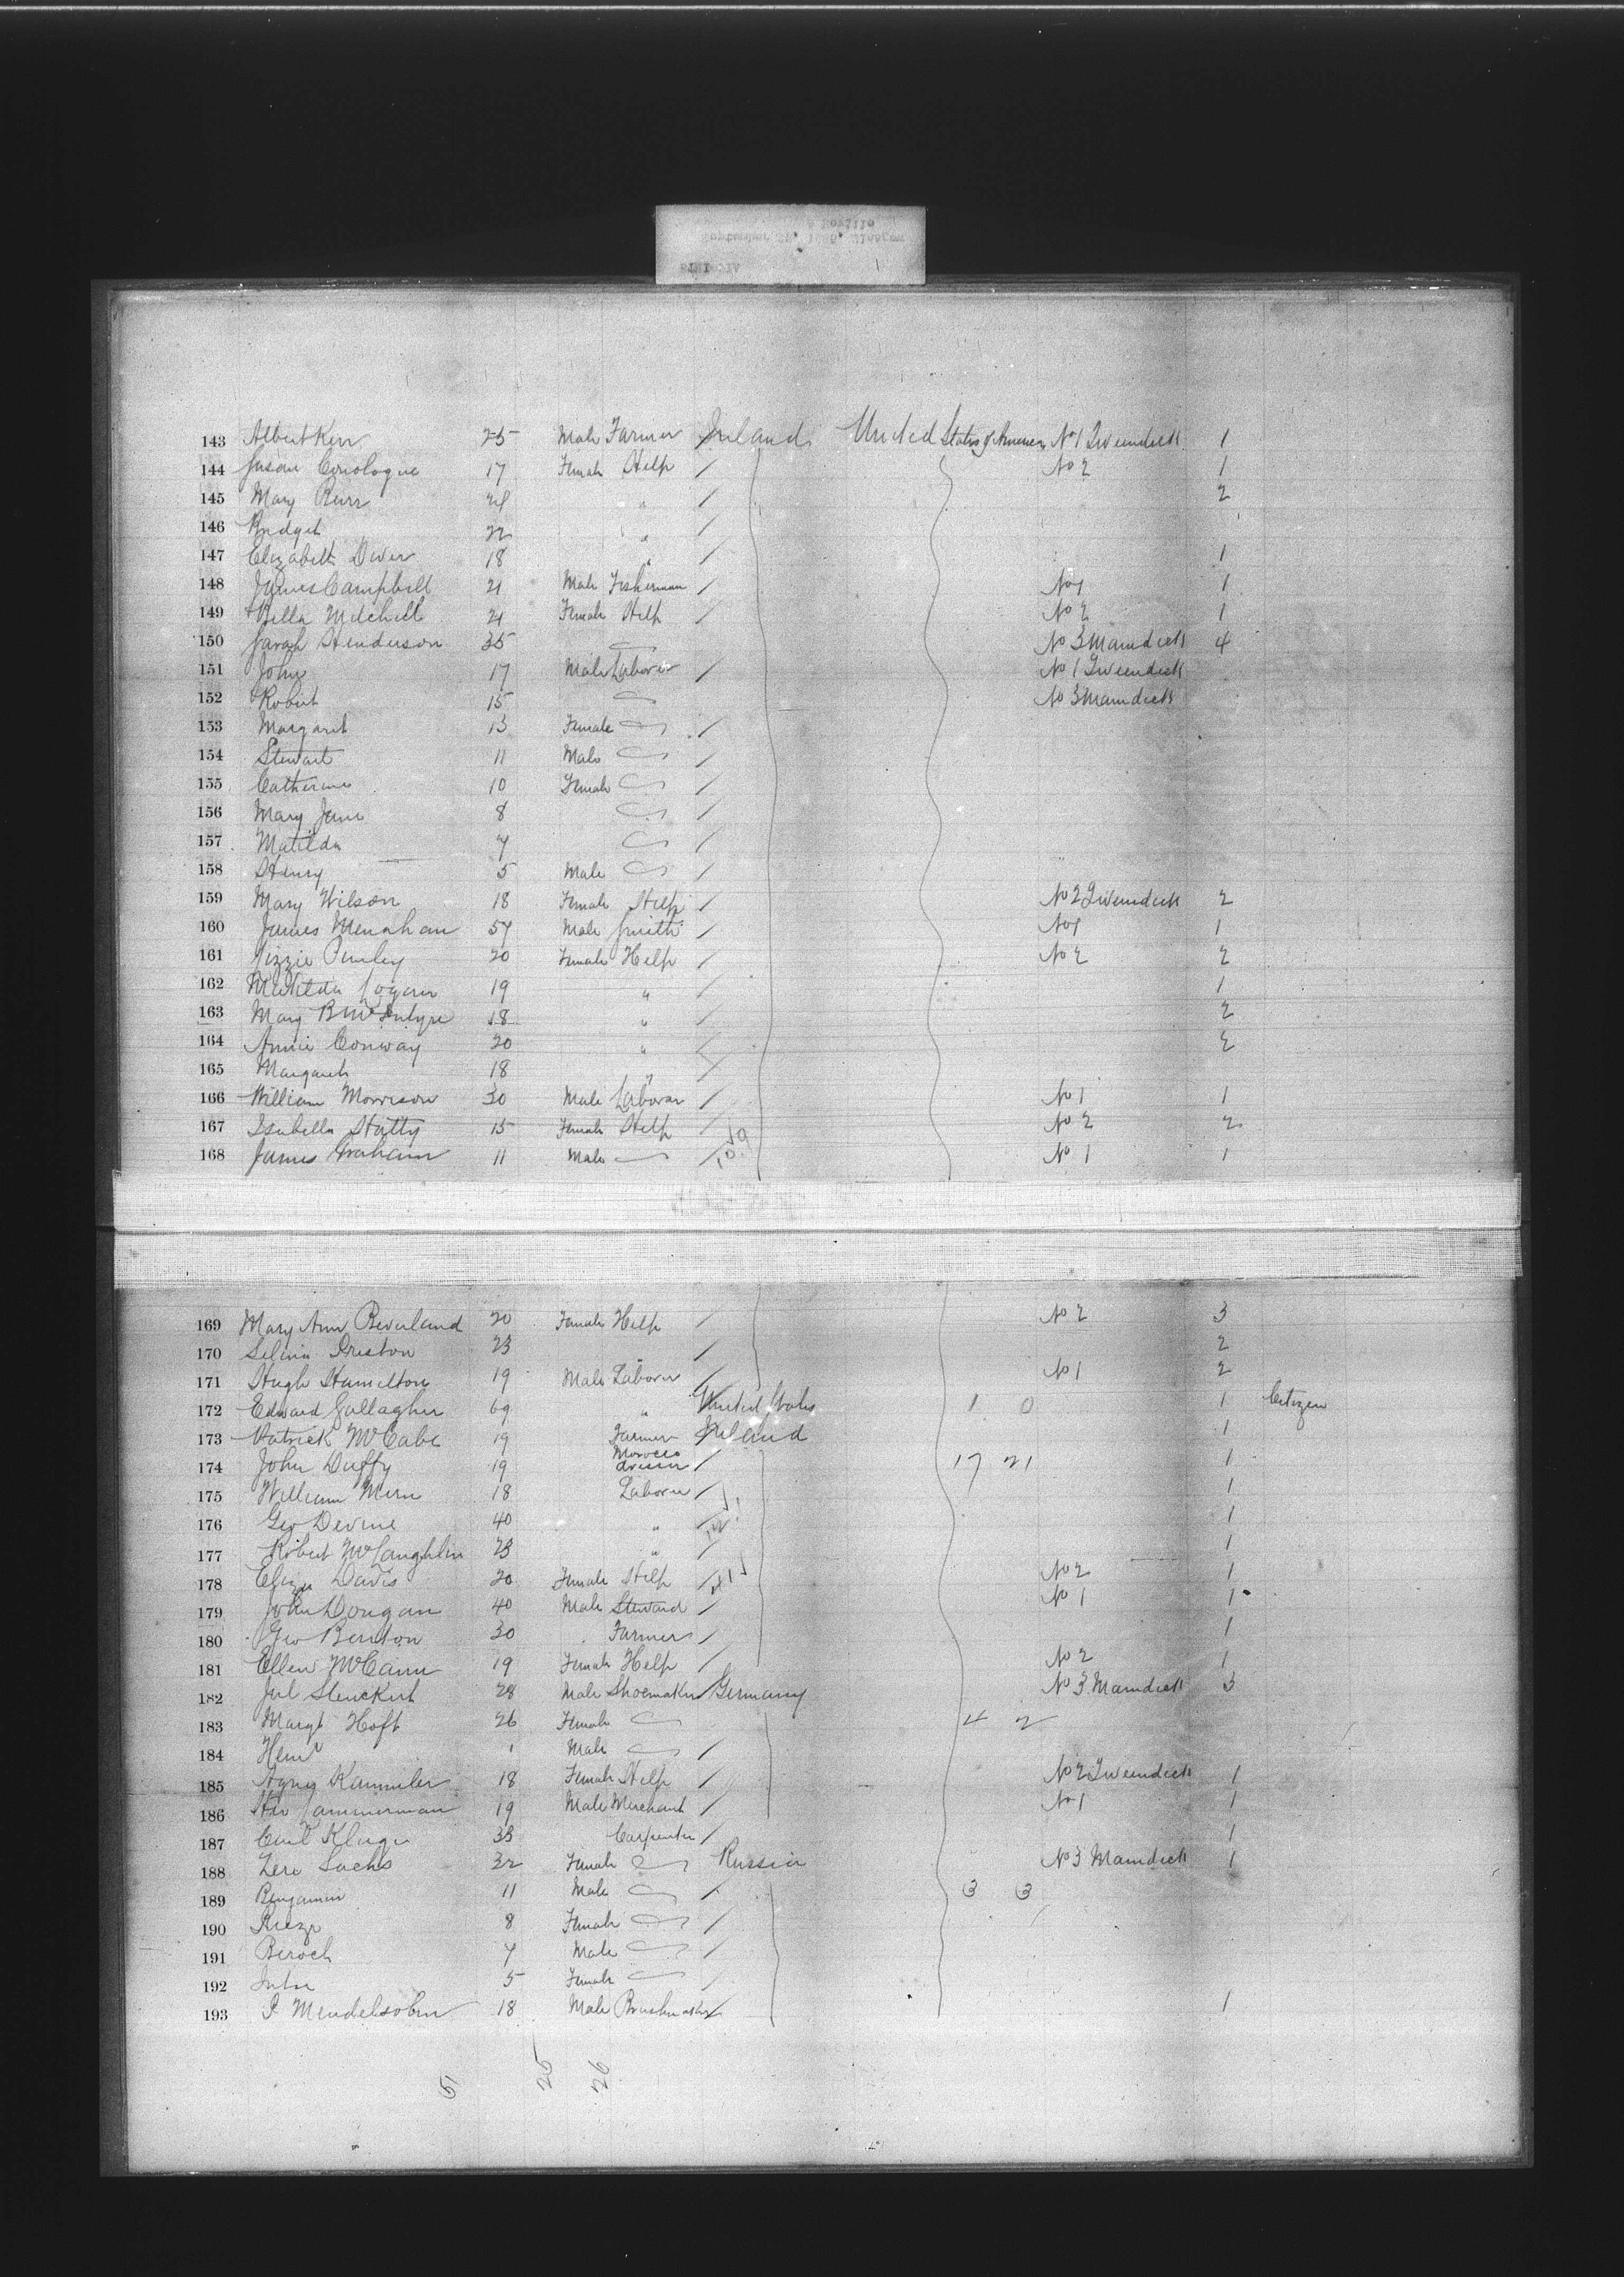 143 Albert Kerr 25 Male Farmer Ireland United States of America No 1 Tweendeck 1
144 Susan Conologue 17 Female Help No 2 1
145 Mary 2
146 Bridget 22 "
147 Elizabeth Diver 18 " 1
148 James Campbell 21 Male Fisherman No 1 1
149 Bella Mitchell 21 Female Help No 2 1
150 Sarah Henderson 35 No 3 Maindeck 4
151 John 17 Male Laborer No 1 Tweendeck
152 Robert 15 No 3 Maindeck
153 Margaret 13 Female
154 Stewart 11 Male
155 Catherine 10 Female
156 Mary Jane 8
157 Matilda 7
158 Henry 5 Male
159 Mary Wilson 18 Female Help No 2 Tweendeck 2
160 James Menahan 57 Male Smith No 1 1
161 Lizzie 20 Female Help No 2 2
162 Matilda Logan 19 " 1
163 Mary B McIntyre 18 " 2
164 Annie Conway 20 " 2
165 Margaret 18 "
166 William Morrison 30 Male Laborer No 1 1
167 Isabella Hatty 15 Female Help No 2 2
168 James Graham 11 Male No 1 1
169 Mary Ann Beverland 20 Female Help No 2 3
170 Selina Preston 23 " 2
171 Hugh Hamilton 19 Male Laborer No 1 2
172 Edward Gallagher 69 " United States 1 0 1 Citizen
173 Patrick McCabe 19 Farmer Ireland 1
174 John Duffy 19 Morocco dresser 17 21 1
175 William 18 Laborer 1
176 Geo Devine 40 " 1
177 Robert McLaughlin 23 " 1
178 Eliza Davis 20 Female Help No 2 1
179 John Dougan 40 Male Steward No 1 1
180 Geo Benton 30 Farmer 1
181 Ellen McCann 19 Female Help No 2 1
182 Jul 28 Male Shoemaker Germany No 3 Maindeck 3
183 Margt Hoft 26 Female 4 2
184 1 Male
185 18 Female Help No 2 Tweendeck 1
186 19 Male Merchant No 1 1
187 Carl Kluge 33 Carpenter 1
188 Sachs 32 Female Russia No 3 Maindeck 1
189 Benjamin 11 Male 3 3
190 8 Female
191 Beroch 7 Male
192 5 Female
193 Mendelsohn 18 Male Brushmaker 1
5 25 26